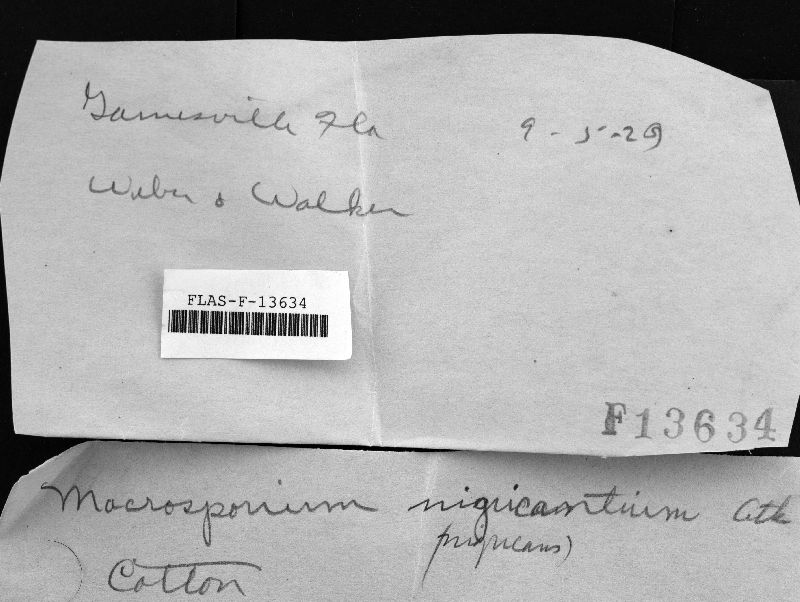 Gainesville Fla 9-5-29
Weber & Walker
FLAS-F-13634
F13634
Macrosporium nigricantium Atk
(nigricans)
Cotton